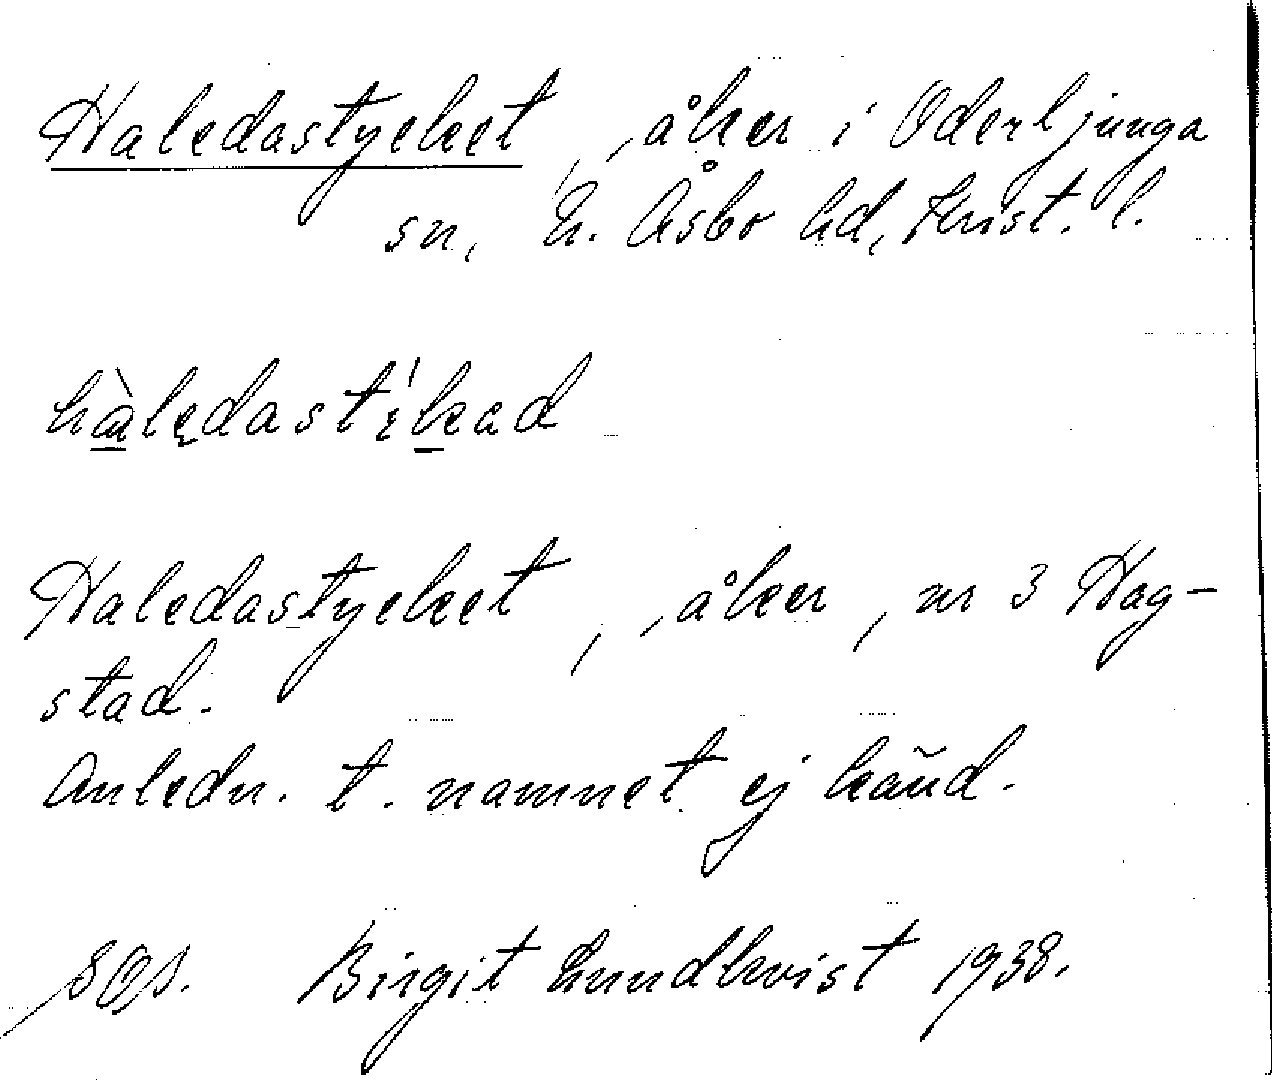 Haledastycket, åker i Oderljunga
sn, N. Åsbo hd, Krist. l.
hàledastikad
Haledastycket, åker, nr 3 Hag-
stad.
Anledn. t. namnet ej känd.
Birgit Lundkvist 1938.